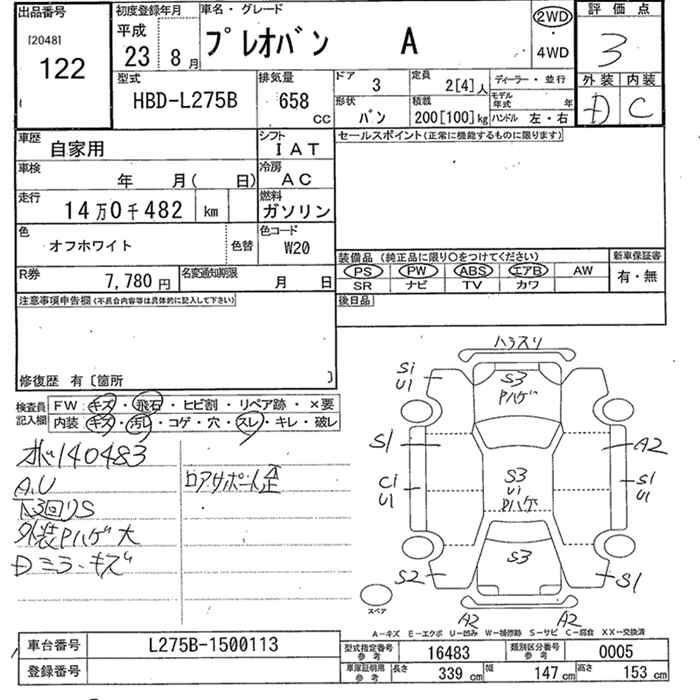 出品番号
[2048]
122
初度登録年月
平成
23 8月
車名・グレード
プレオバン A
2WD
4WD
評価点
3
外装 内装
D C
型式
HBD-L275B
排気量
658
CC
ドア
3
定員
2[4]人
形状
バン
積載
200[100]kg
ディーラー・並行
モデル年式 年
ハンドル 左・右
車歴
自家用
シフト
IAT
車検
年 月( 日)
冷房
AC
走行
14万0千482 km
燃料
ガソリン
色
オフホワイト
色替
色コード
W20
R券
7,780円
名変通知期限
月 日
セールスポイント(正常に機能するものに限ります)
装備品(純正品に限り○をつけてください)
PS PW ABS エアB AW
SR ナビ TV カワ
新車保証書
有・無
後日品
注意事項申告欄(不具合内容等は具体的に記入して下さい)
修復歴 有〔箇所 〕
検査員記入欄
FW: キズ・飛石・ヒビ割・リペア跡・×要
内装 キズ・汚レ・コゲ・穴・スレ・キレ・破レ
140483
A.U
ロアサポート歪
外装Pハゲ大
Dミラーキズ
ハラスリ
Si
U1
S3
Pハゲ
S1
A2
Ci
U1
S3
Ui
Pハゲ
S1
U1
S2
S3
S1
A2
A2
スペア
A-キズ E-エクボ U-凹み W-補修跡 S-サビ C-腐食 XX-交換済
車台番号
L275B-1500113
登録番号
型式指定番号参考
16483
類別区分番号参考
0005
車庫証明用参考
長さ 339 cm
幅 147 cm
高さ 153 cm